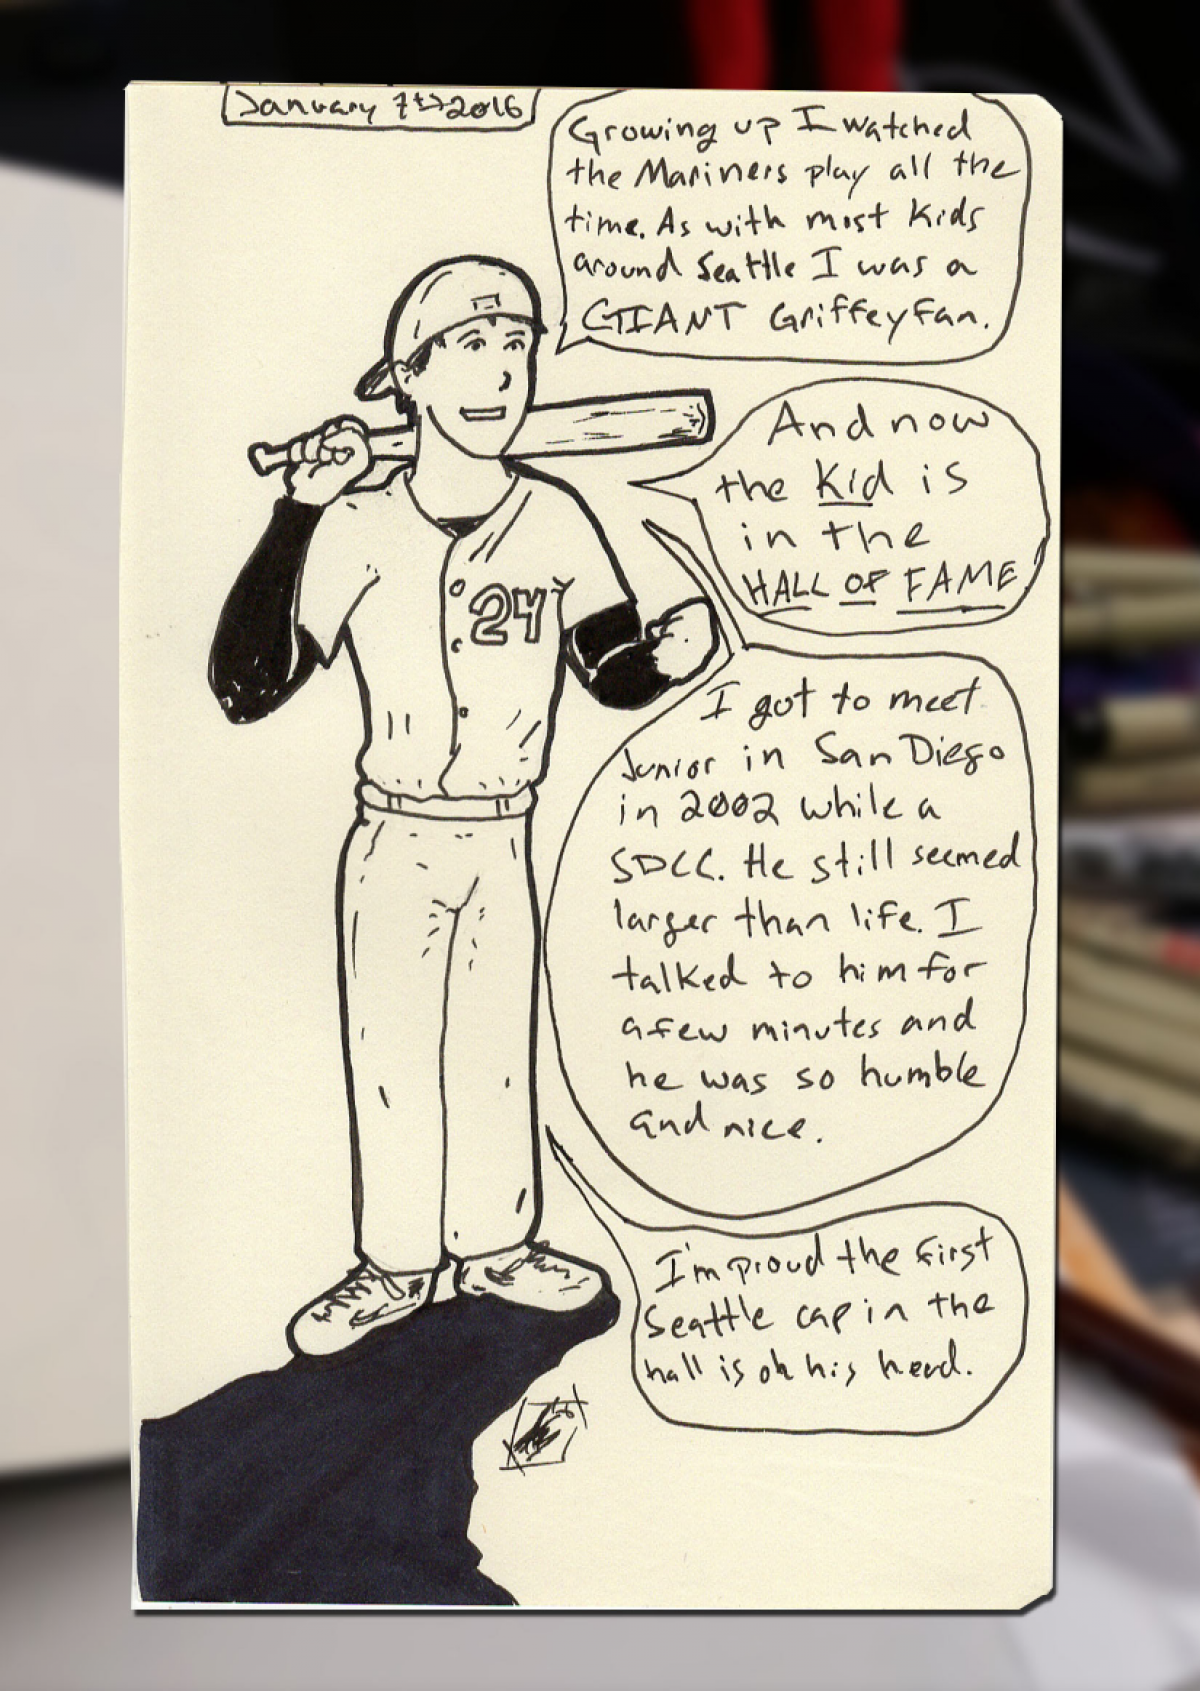 January 7th 2016
Growing up I watched
the Mariners play all the
time. As with most kids
around Seattle I was a
GIANT Griffey fan.
And now
the Kid is
in the
HALL OF FAME
24
I got to meet
Junior in San Diego
in 2002 while a
SDCC. He still seemed
larger than life. I
talked to him for
a few minutes and
he was so humble
and nice.
I'm proud the first
Seattle cap in the
hall is on his head.